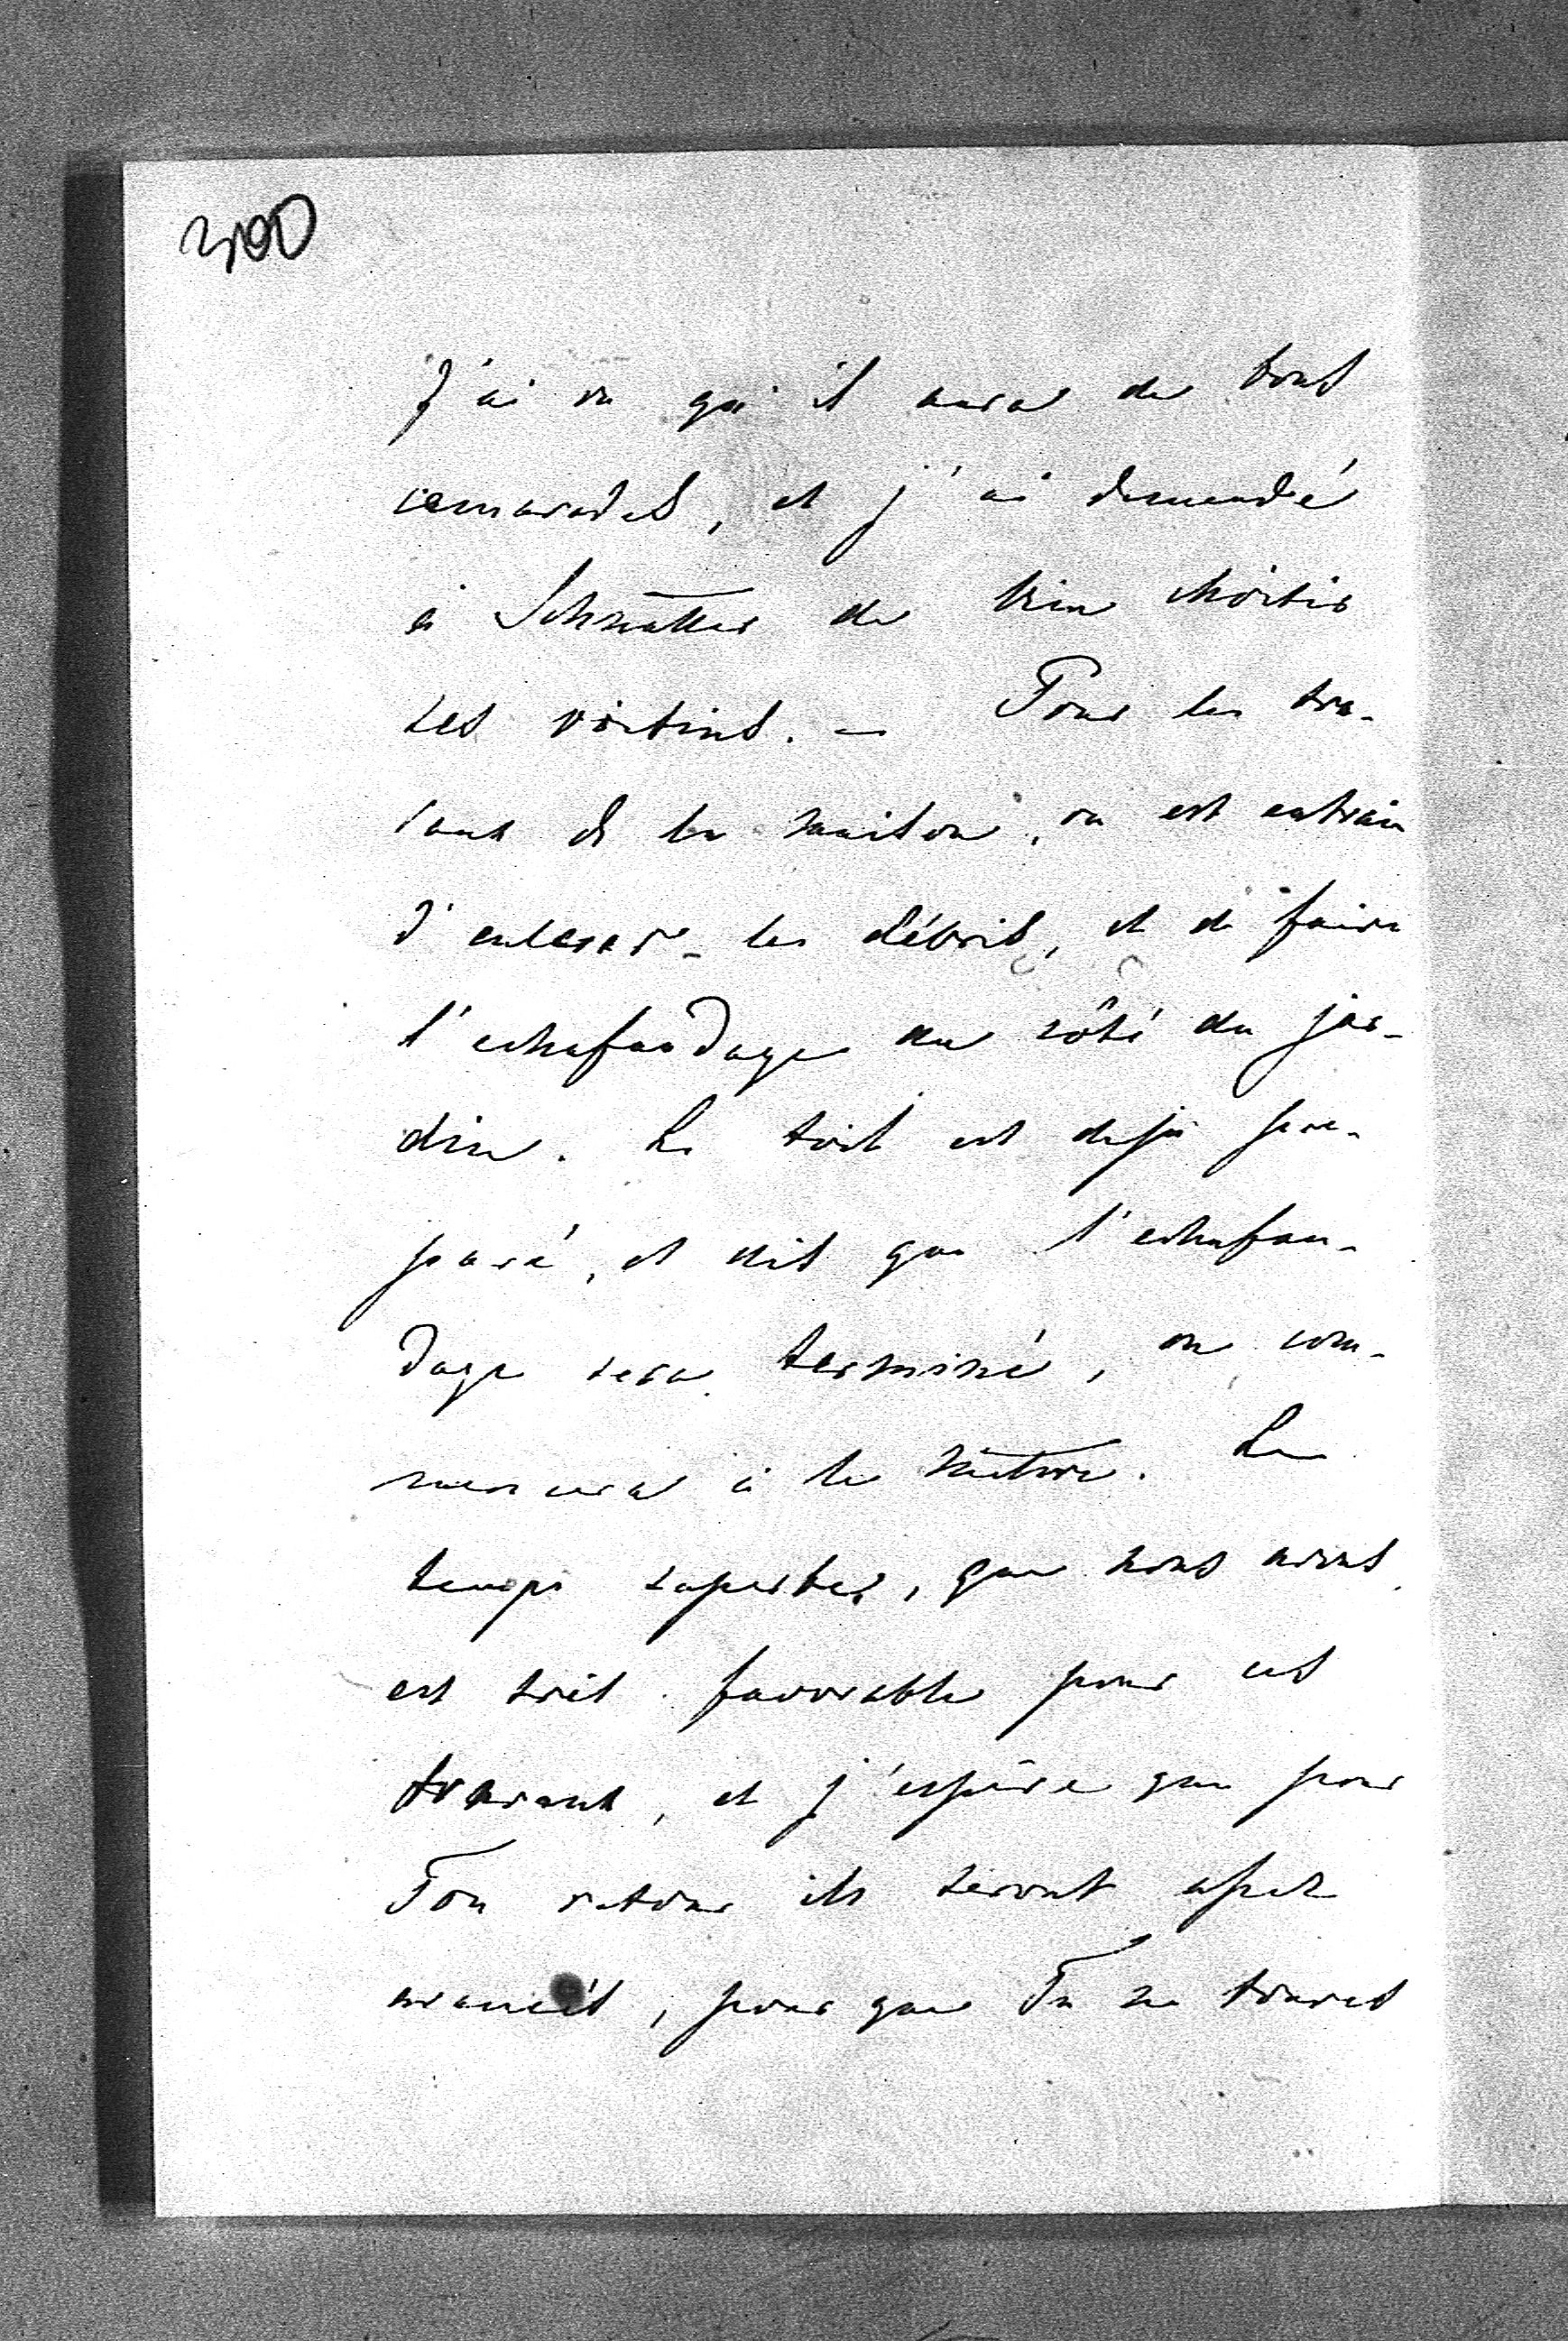 J'ai vu qu'il aura de bons
camarades, et j'ai demandé
à de bien choisir
ses voisins. — Pour les tra-
vaux de la maison, on est entrain
d'enlever les débris, et de faire
l'echafaudage au côté du jar-
din. Le toit est deja pre-
paré, et dès que l'echafau-
dage sera terminé, on com-
mencera à le mettre. Le
temps superbe, que nous avons
est très favorable pour ces
travaux, et j'espère que pour
Ton retour ils seront assez
avancés, pour que Tu ne trouves